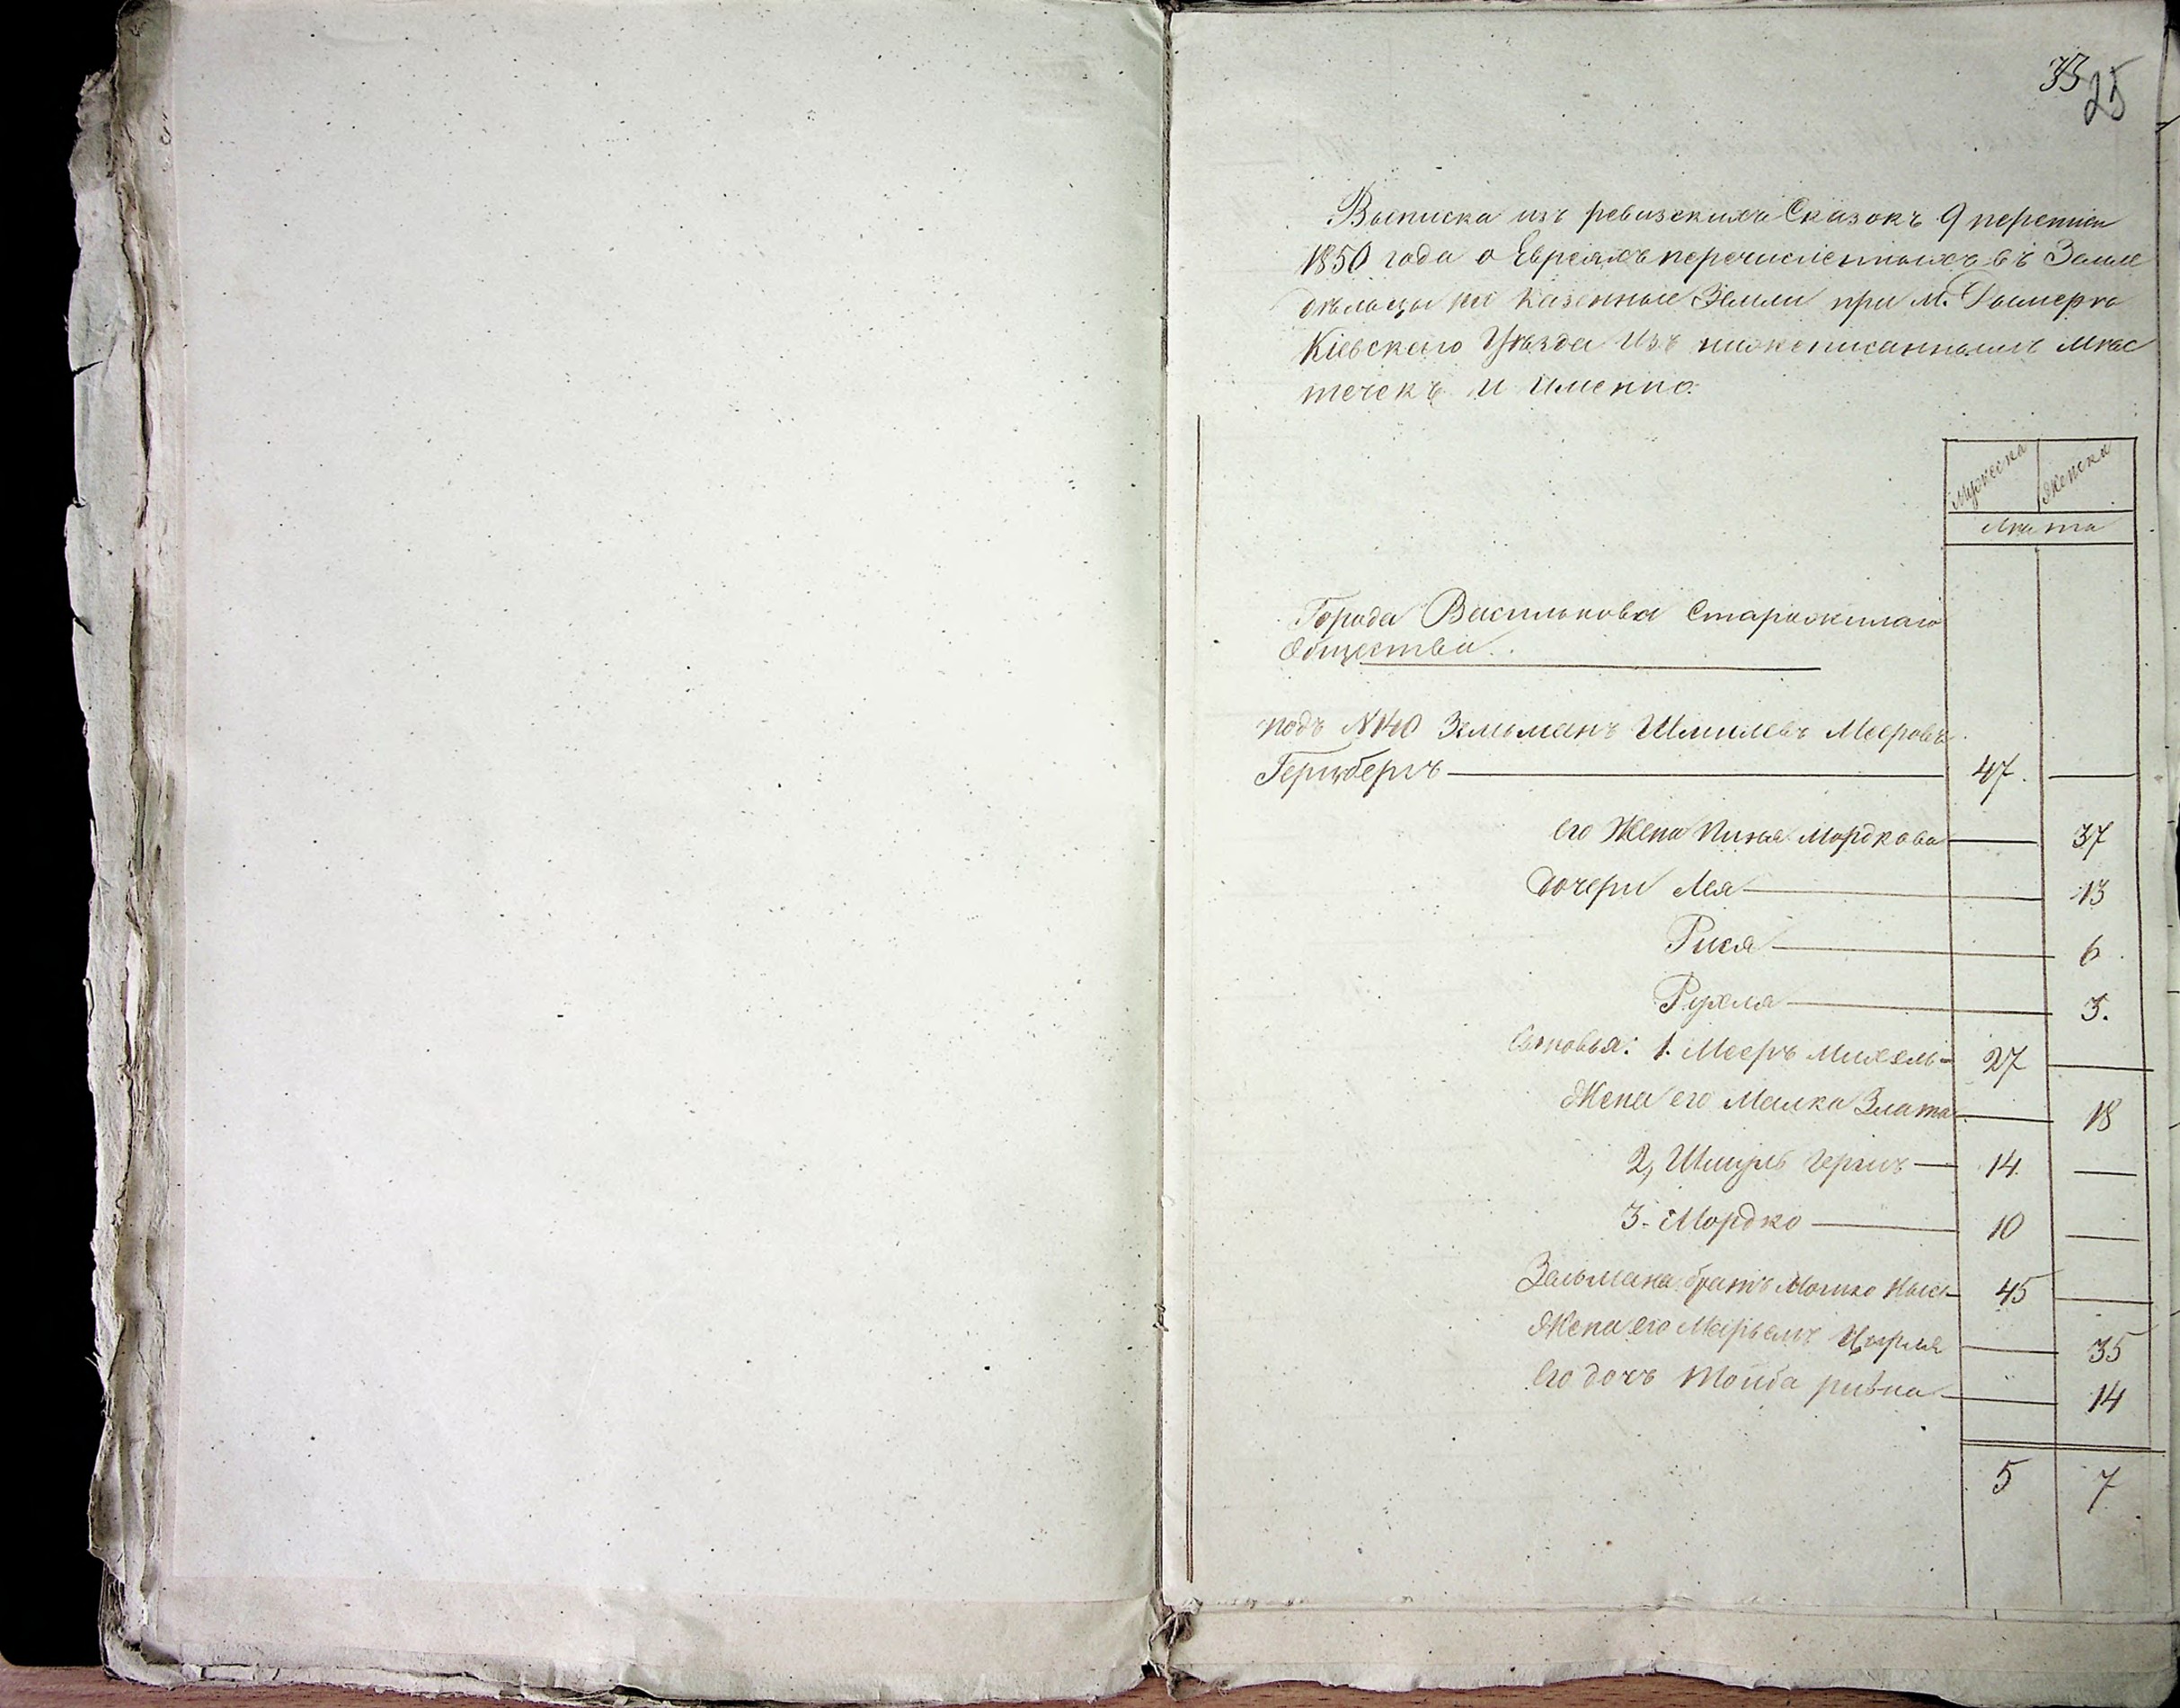 33
25
Выписка изъ ревизскихъ Сказокъ 9 переписи
1850 года о Евреяхъ перечисленныхъ въ Земле
дѣльцы на Казенные Земли при М. Дымерѣ
Кіевскаго Уѣзда Изъ нижеписанныхъ мѣс
течекъ и Именно:
Мужеска Женска
Лѣта
Города Василькова Старожилаго
Общества.
подъ N 140 Зельманъ Шмилевъ Мееровъ
Герцбергъ — 47. —
его Жена Мордкова — 37
Дочери Лея — 13
Рися — 6
Рухля — 3.
Сыновья: 1. Мееръ Михель — 27 —
Жена его Малка Злата — 18
2, Шмуль Гершъ — 14 —
3. Мордко — 10 —
Зельмана братъ Мошко — 45 —
Жена его Марьямъ Цирля — 35
Его дочь Тойба ривка — 14
5 7